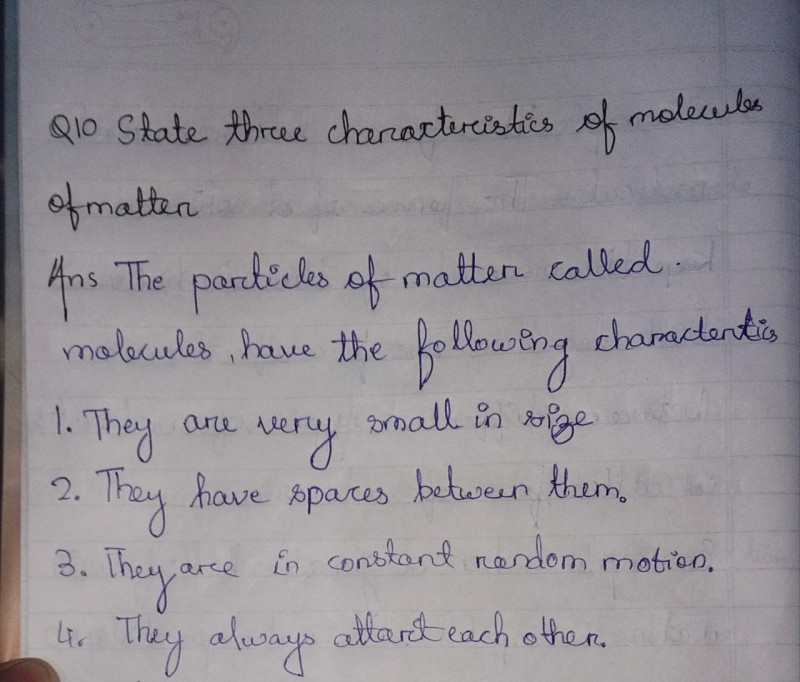 Q10 State three characteristics of molecules
of matter
Ans The particles of matter called.
molecules, have the following charactertics
1. They are very small in size
2. They have spaces between them.
3. They are in constant random motion.
4. They always attarct each other.